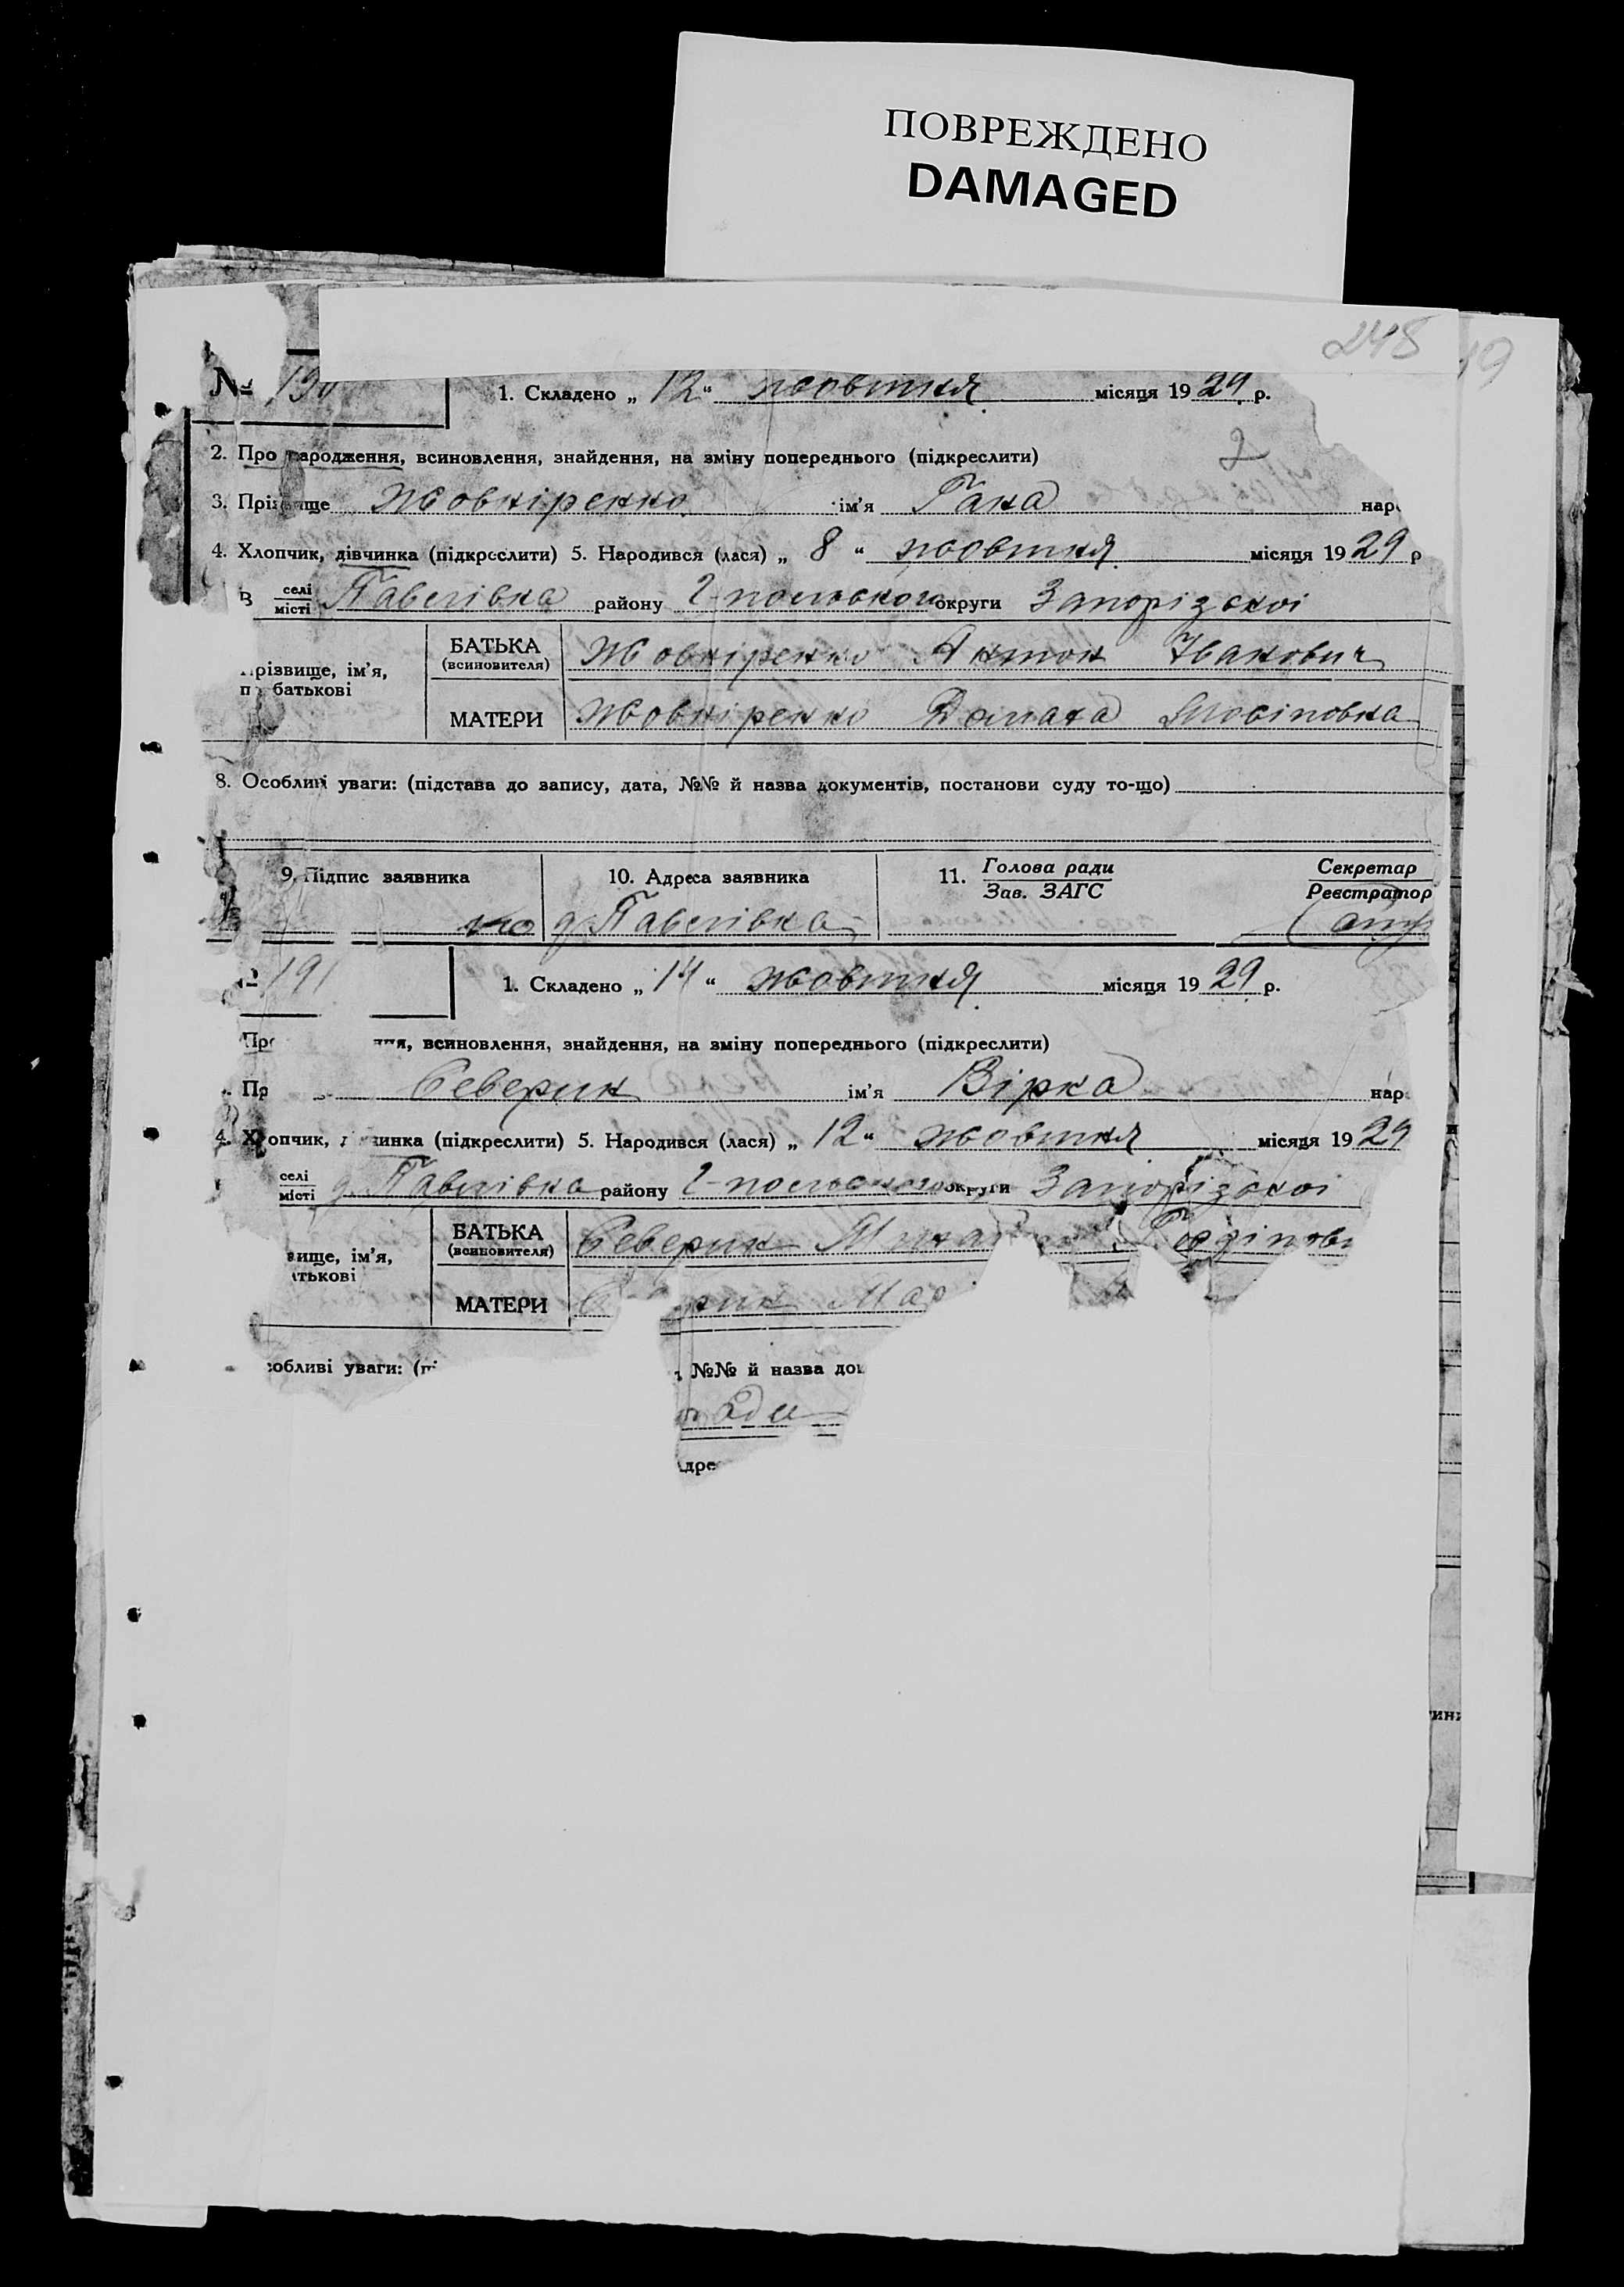 ПОВРЕЖДЕНО
DAMAGED
248
19
№ 190
1. Складено „ 12 “ жовтня місяця 1929 р.
2
2. Про народження, всиновлення, знайдення, на зміну попереднього (підкреслити)
3. Прізвище Жовніренко ім’я Гана наро
4. Хлопчик, дівчинка (підкреслити) 5. Народився (лася) „ 8 “ жовтня місяця 1929 р
В селі
місті Павлівка району Г-польського округи Запорізької
прізвище, ім’я,
по батькові
БАТЬКА
(всиновителя) Жовніренко Антон Іванович
МАТЕРИ Жовніренко Домаха
8. Особливі уваги: (підстава до запису, дата, №№ й назва документів, постанови суду то-що)
9. Підпис заявника 10. Адреса заявника 11. Голова ради
Зав. ЗАГС Секретар
Реєстратор
д. Павлівка
№ 191
1. Складено „ 14 “ жовтня місяця 1929 р.
Про ння, всиновлення, знайдення, на зміну попереднього (підкреслити)
Пр Северин ім’я Вірка наро
4. Хлопчик, дівчинка (підкреслити) 5. Народився (лася) „ 12 “ жовтня місяця 1929
селі
місті д. Павлівка району Г-польського округи Запорізької
вище, ім’я,
атькові
БАТЬКА
(всиновителя) Северин
МАТЕРИ С рин Мар
собливі уваги: (пі , №№ й назва док
Адрес